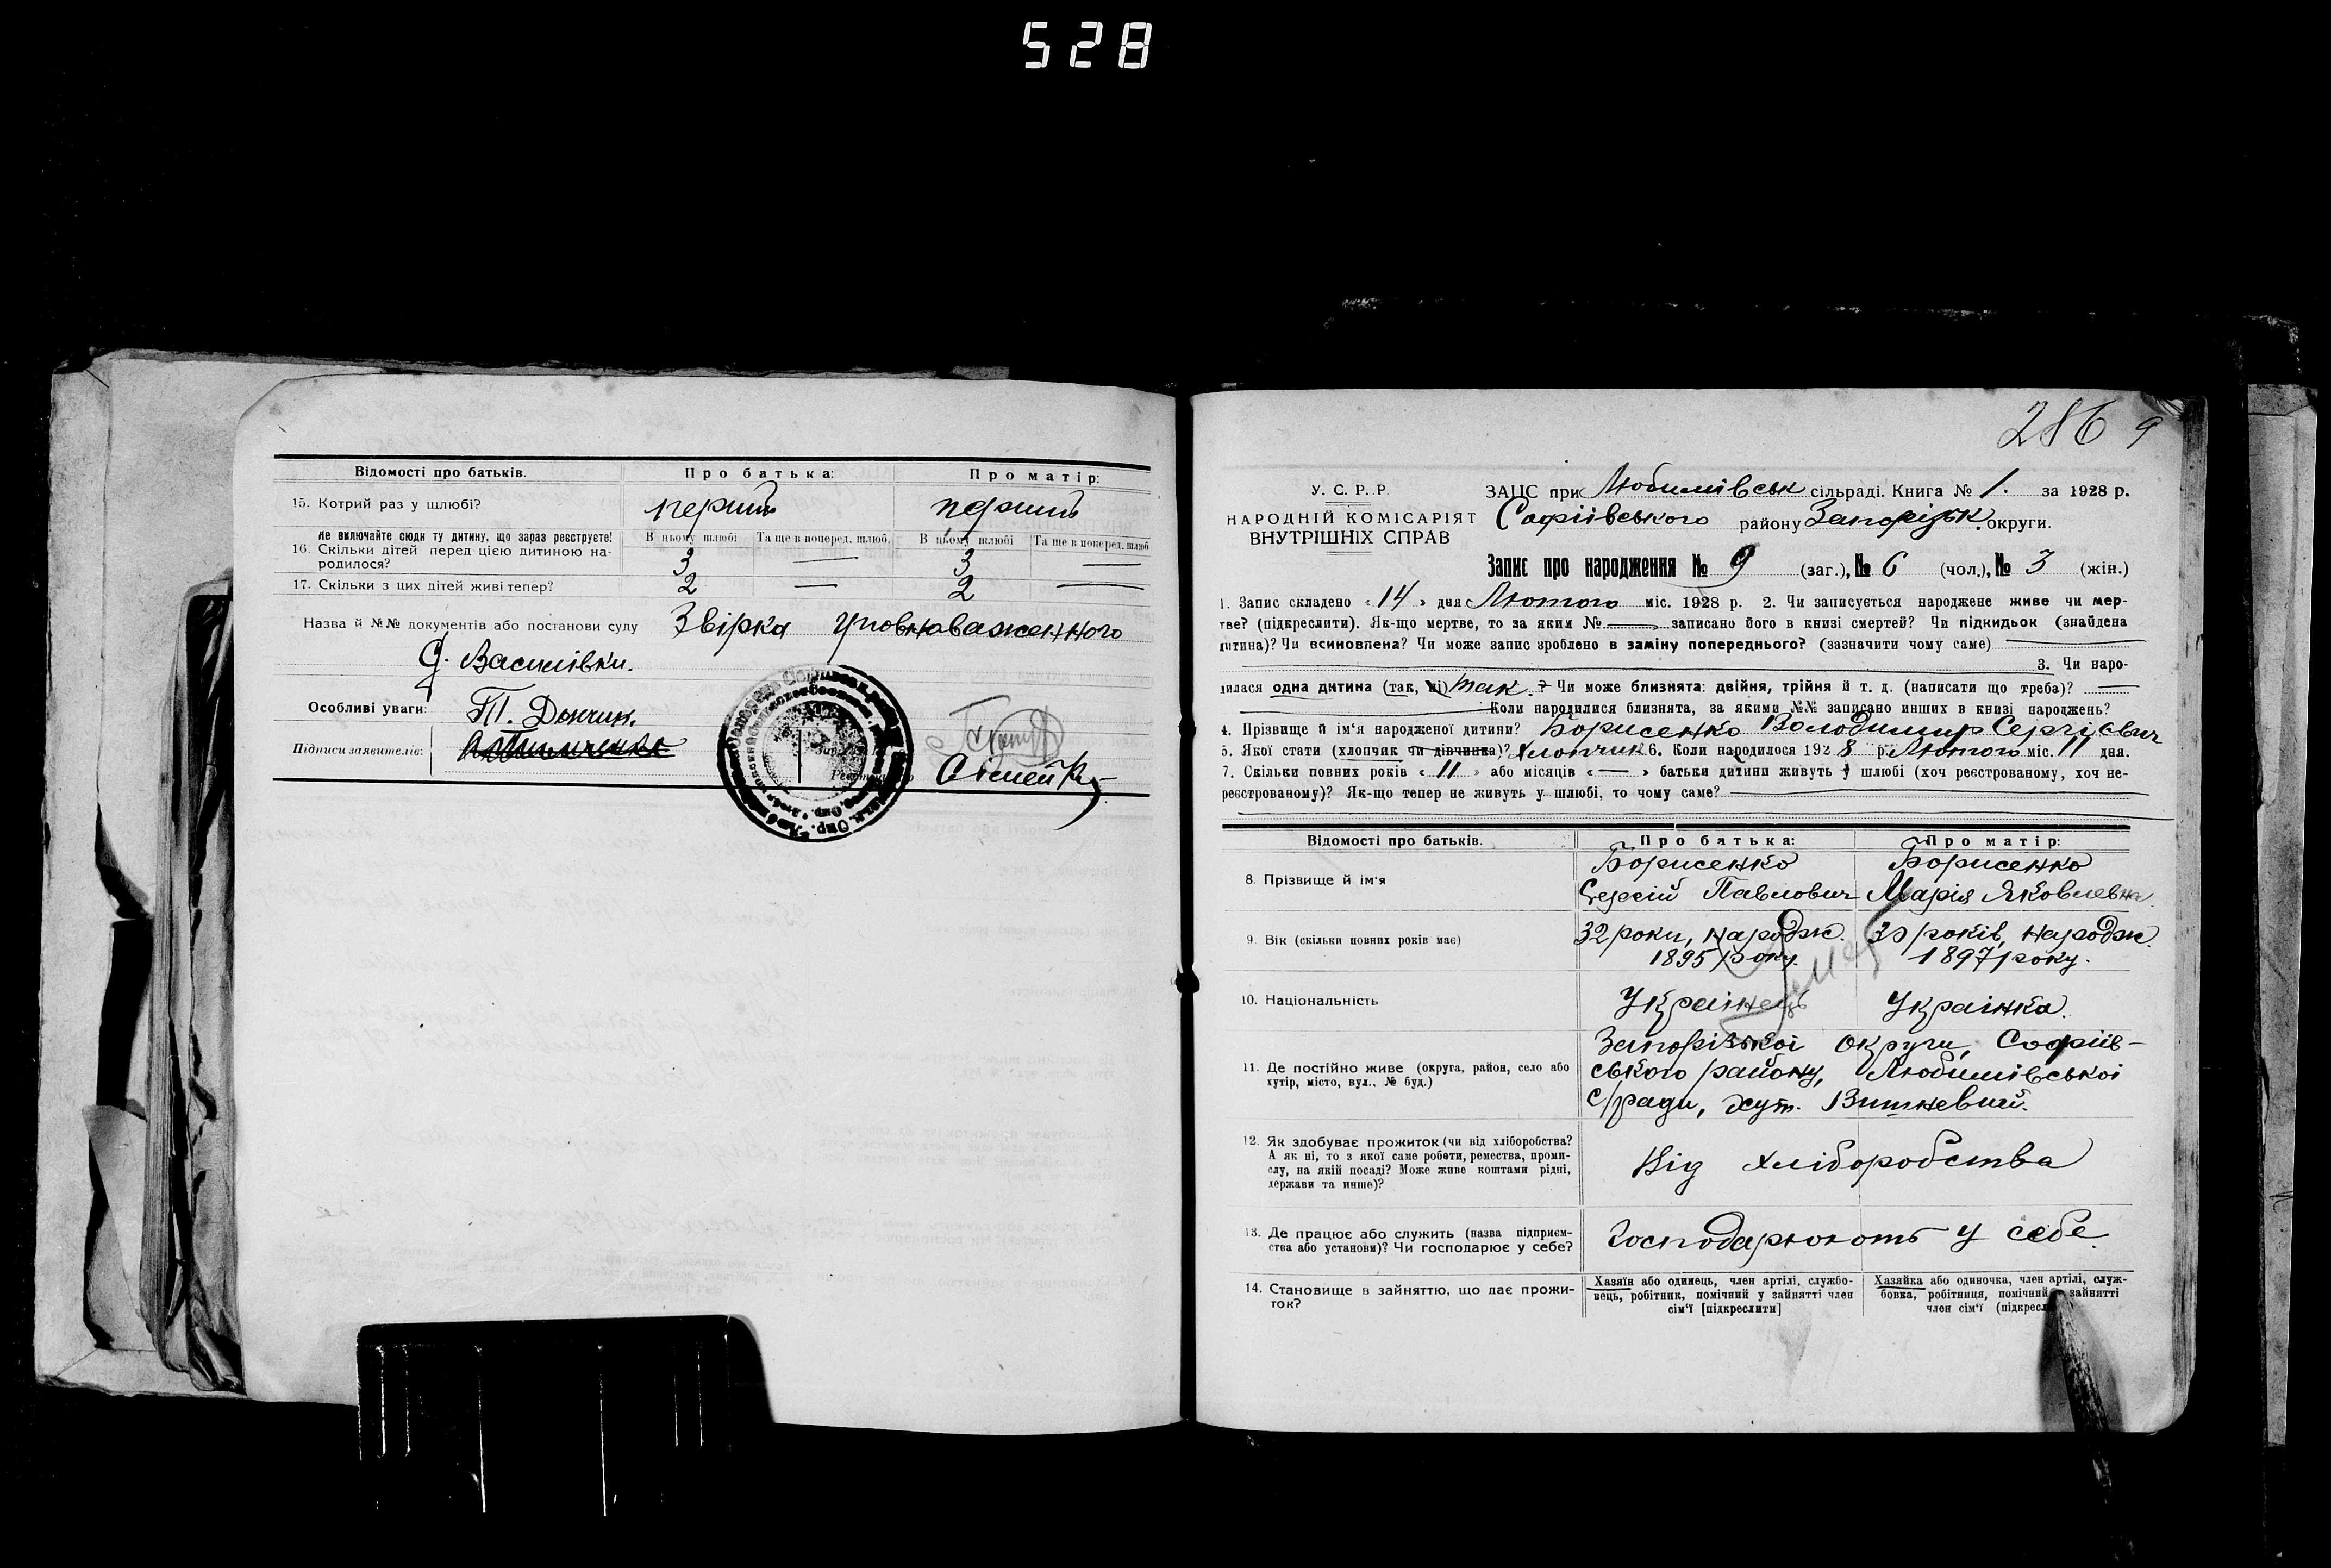 528
Відомості про батьків. Про батька: Про матір:
15. Котрий раз у шлюбі? перший перший
Не включайте сюди ту дитину, що зараз реєструєте! В цьому шлюбі Та ще в поперед. шлюб. В цьому шлюбі Та ще в поперед. шлюб
16. Скільки дітей перед цією дитиною на-
родилося? 3 — 3 —
17. Скільки з цих дітей живі тепер? 2 — 2 —
Назва й №№ документів або постанови суду Звірка уповноваженного
С. Василівки.
Особливі уваги: Т. Дончик.
Підписи заявителів:
286 9
У. С. Р. Р.
НАРОДНІЙ КОМІСАРІЯТ
ВНУТРІШНІХ СПРАВ
ЗАЦС при Любимівськ сільраді. Книга № 1. за 1928 р.
Софіївського району Запорізьк. округи.
Запис про народження № 9 (заг.), № 6 (чол.), № 3 (жін.)
1. Запис складено « 14 » дня Лютого міс. 1928 р. 2. Чи записується народжене живе чи мер-
тве? (підкреслити). Як-що мертве, то за яким № — записано його в книзі смертей? Чи підкидьок (знайдена
дитина)? Чи всиновлена? Чи може запис зроблено в заміну попереднього? (зазначити чому саме) —
3. Чи наро-
дилася одна дитина (так, ні) так. ? Чи може близнята: двійня, трійня й т. д. (написати що треба)? —
Коли народилися близнята, за якими №№ записано инших в книзі народжень?
4. Прізвище й ім'я народженої дитини? Борисенко Володимир Сергієвич
5. Якої стати (хлопчик чи дівчинка)? Хлопчик 6. Коли народилося 1928 р. Лютого міс. 11 дня.
7. Скільки повних років « 11 » або місяців « — » батьки дитини живуть у шлюбі (хоч реєстрованому, хоч не-
реєстрованому)? Як-що тепер не живуть у шлюбі, то чому саме? —
Відомості про батьків. Про батька: Про матір:
8. Прізвище й ім'я
Борисенко
Сергій Павлович
Борисенко
Марія Яковлевна
9. Вік (скільки повних років має)
32 роки, народж.
1895 року.
30 років, народж.
1897 року.
10. Національність Українець Українка.
11. Де постійно живе (округа, район, село або
хутір, місто, вул., № буд.)
Запорізької округи, Софіїв-
ського району, Любимівської
с/ради, хут. Вишневий.
12. Як здобуває прожиток (чи від хліборобства?
А як ні, то з якої саме роботи, ремества, проми-
слу, на якій посаді? Може живе коштами рідні,
держави та инше)?
Від хліборобства
13. Де працює або служить (назва підприєм-
ства або установи)? Чи господарює у себе?
Господарюють у себе.
14. Становище в зайняттю, що дає прожи-
ток?
Хазяїн або одинець, член артілі, службо-
вець, робітник, помічний у зайнятті член
сім'ї [підкреслити]
Хазяйка або одиночка, член артілі, служ-
бовка, робітниця, помічний зайнятті
член сім'ї